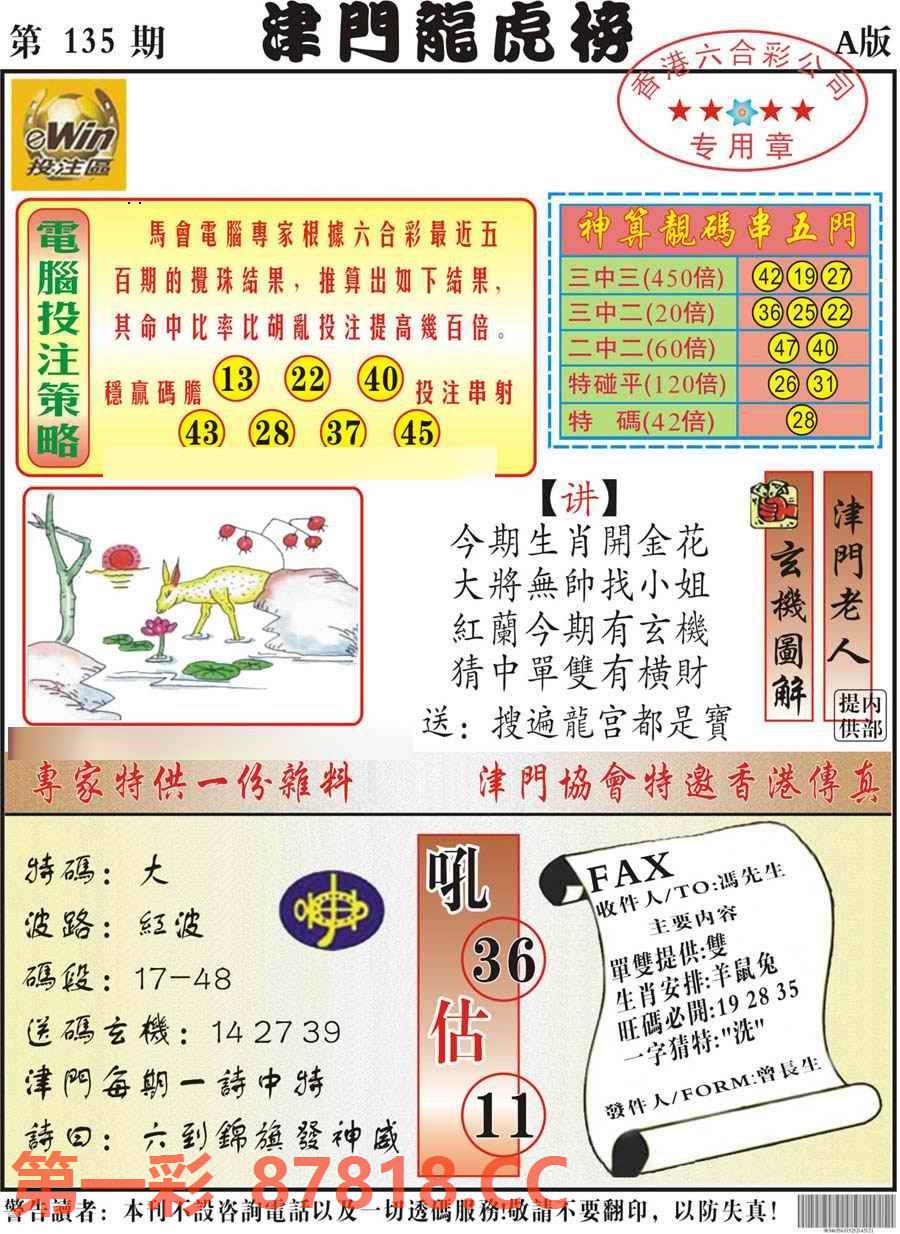 第 135 期
津門龍虎榜
A版
香港六合彩公司
专用章
eWin
投注區
電腦投注策略
馬會電腦專家根據六合彩最近五
百期的攪珠結果，推算出如下結果，
其命中比率比胡亂投注提高幾百倍。
穩贏碼膽 13 22 40 投注串射
43 28 37 45
神算靚碼串五門
三中三(450倍) 42 19 27
三中二(20倍) 36 25 22
二中二(60倍) 47 40
特碰平(120倍) 26 31
特 碼(42倍) 28
【讲】
今期生肖開金花
大將無帥找小姐
紅蘭今期有玄機
猜中單雙有橫財
送：搜遍龍宮都是寶
玄機圖解
津門老人
内部提供
專家特供一份雜料
津門協會特邀香港傳真
特碼：大
波路：紅波
碼段：17-48
送碼玄機：14 27 39
津門每期一詩中特
詩曰：六到錦旗發神威
吼
36
估
11
FAX
收件人/TO:馮先生
主要内容
單雙提供:雙
生肖安排:羊鼠兔
旺碼必開:19 28 35
一字猜特:"洗"
發件人/FORM:曾長生
第一彩 87818.CC
警告讀者：本刊不設咨詢電話以及一切透碼服務!敬請不要翻印，以防失真!